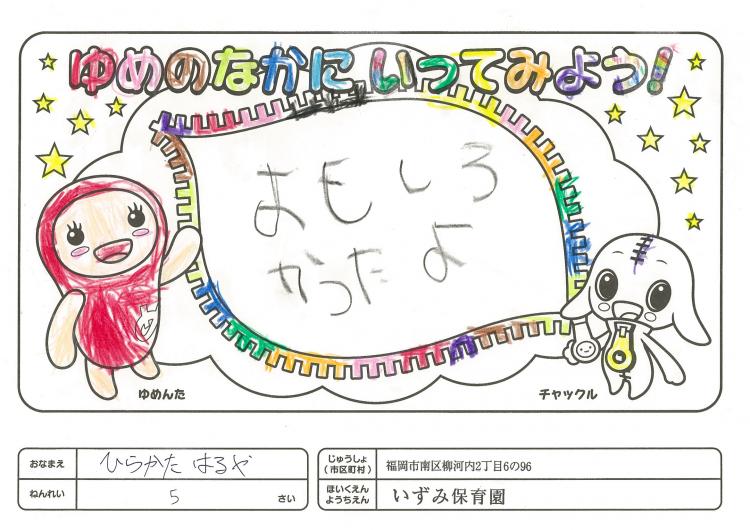 ゆめのなかに いってみよう!
おもしろ
かったよ
ゆめんた
チャックル
おなまえ ひらかた はるや
ねんれい 5 さい
じゅうしょ
(市区町村) 福岡市南区柳河内2丁目6の96
ほいくえん
ようちえん いずみ保育園